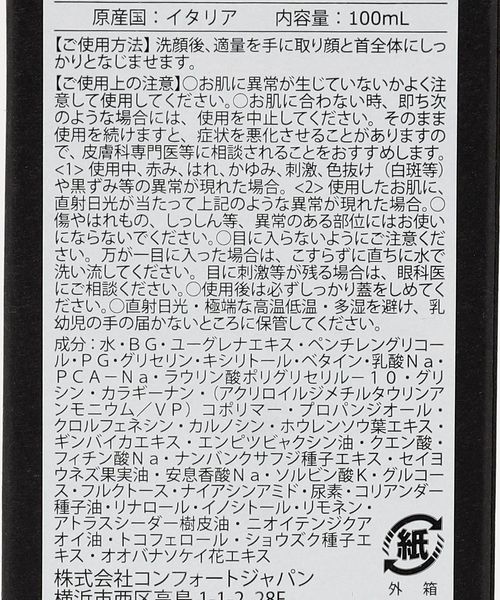 原産国：イタリア　内容量：100mL
【ご使用方法】洗顔後、適量を手に取り顔と首全体にしっ
かりとなじませます。
【ご使用上の注意】○お肌に異常が生じていないかよく注
意して使用してください。○お肌に合わない時、即ち次
のような場合には、使用を中止してください。そのまま
使用を続けますと、症状を悪化させることがありますの
で、皮膚科専門医等に相談されることをおすすめします。
<1> 使用中、赤み、はれ、かゆみ、刺激、色抜け（白斑等）
や黒ずみ等の異常が現れた場合。<2> 使用したお肌に、
直射日光が当たって上記のような異常が現れた場合。○
傷やはれもの、しっしん等、異常のある部位にはお使い
にならないでください。○目に入らないようにご注意くだ
さい。万が一目に入った場合は、こすらずに直ちに水で
洗い流してください。目に刺激等が残る場合は、眼科医
にご相談ください。○使用後は必ずしっかり蓋をしめてく
ださい。○直射日光・極端な高温低温・多湿を避け、乳
幼児の手の届かないところに保管してください。
成分：水・BG・ユーグレナエキス・ペンチレングリコー
ル・PG・グリセリン・キシリトール・ベタイン・乳酸Na・
PCA－Na・ラウリン酸ポリグリセリル－10・グリ
シン・カラギーナン・（アクリロイルジメチルタウリンア
ンモニウム／VP）コポリマー・プロパンジオール・
クロルフェネシン・カルノシン・ホウレンソウ葉エキス・
ギンバイカエキス・エンピツビャクシン油・クエン酸・
フィチン酸Na・ナンバンクサフジ種子エキス・セイヨ
ウネズ果実油・安息香酸Na・ソルビン酸K・グルコー
ス・フルクトース・ナイアシンアミド・尿素・コリアンダー
種子油・リナロール・イノシトール・リモネン・
アトラスシーダー樹皮油・ニオイテンジクア
オイ油・トコフェロール・ショウズク種子エ
キス・オオバナソケイ花エキス
株式会社コンフォートジャパン
横浜市西区高島 1-1-2 28F
紙
外 箱